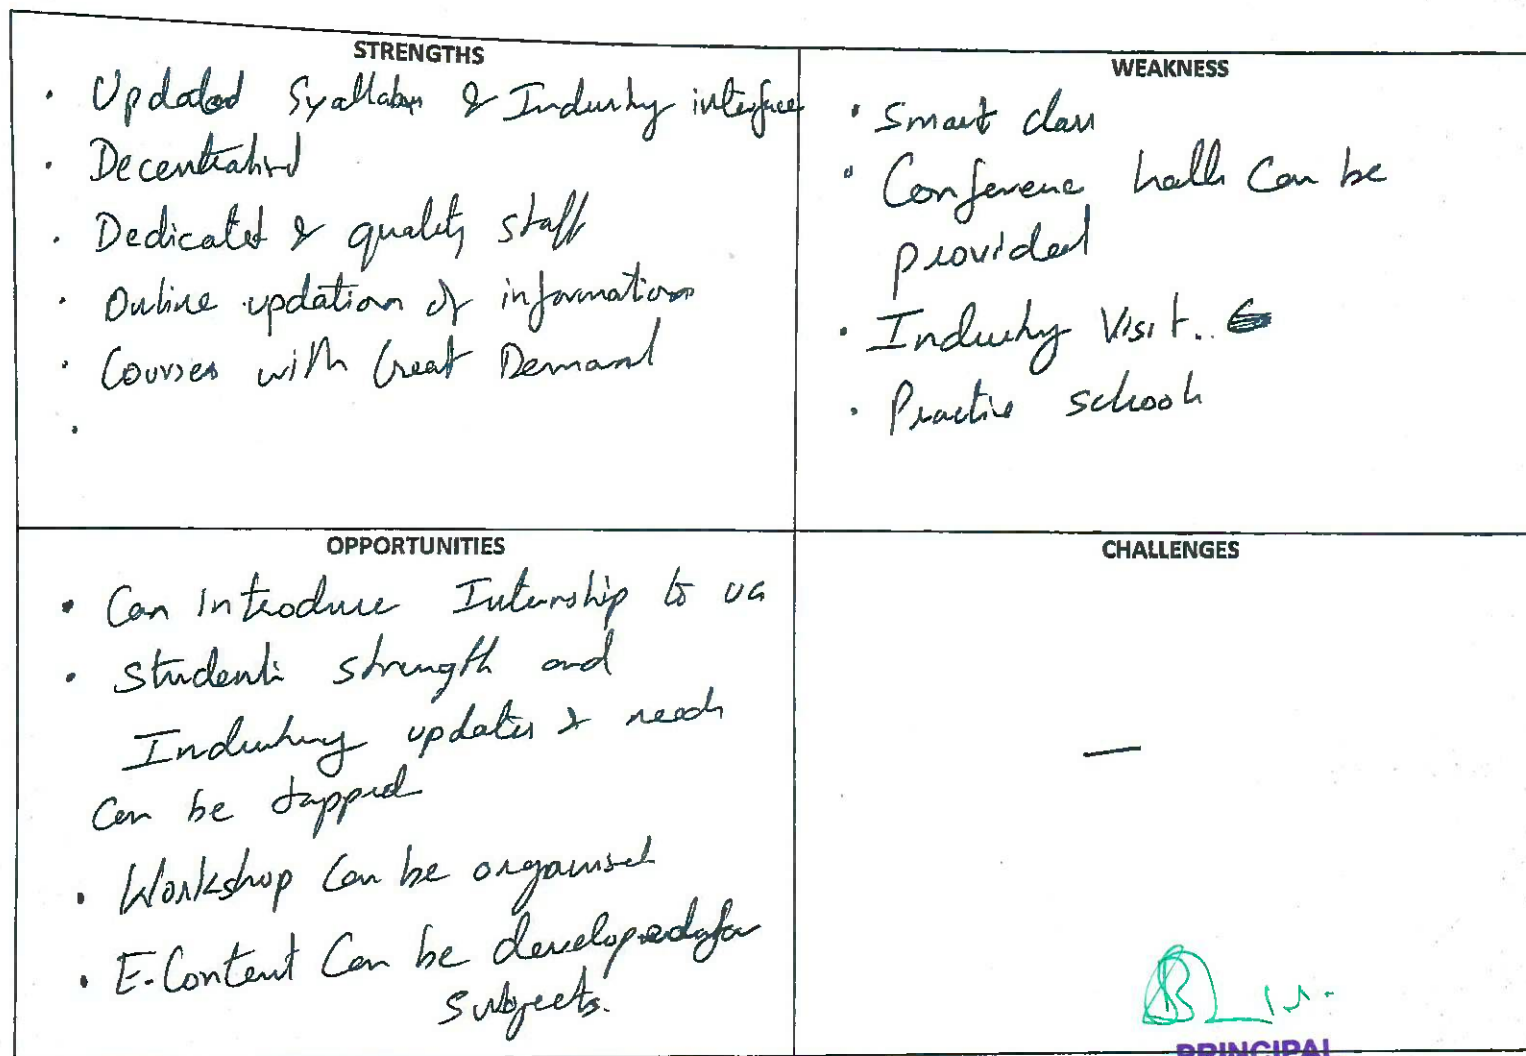 STRENGTHS
· Updated Syallabus & Industry interface
· Decentralised
· Dedicated & quality staff
· Online updation of informations
· Courses with Great Demand
·
WEAKNESS
· Smart class
· Conference halls can be
provided
· Industry Visit..
· Practice schools
OPPORTUNITIES
· Can introduce Internship to UG
· Students strength and
Industry updates & needs
can be tapped
· Workshop can be organised
· E-Content can be developed for
subjects.
CHALLENGES
—
PRINCIPAL